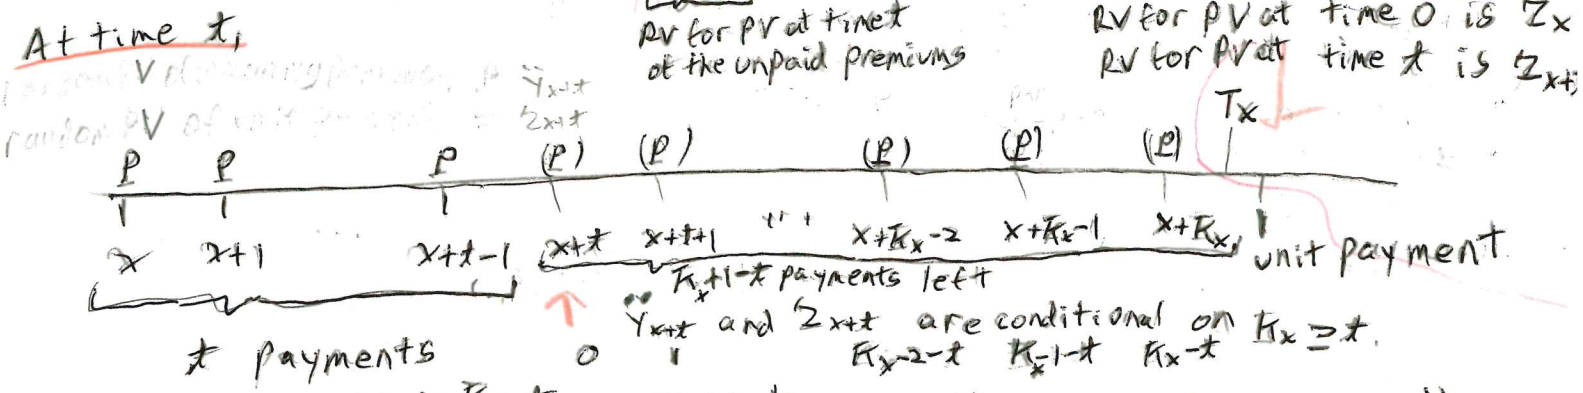 At time t,
RV for PV at time t
of the unpaid premiums
RV for PV at time 0 is Zx
RV for PV at time t is Zx+t
Ÿx+t
Zx+t
random PV of unit
Tx
P P P (P) (P) (P) (P) (P)
x x+1 x+t-1 x+t x+t+1 ... x+Kx-2 x+Kx-1 x+Kx, unit payment
Kx+1-t payments left
Ÿx+t and Zx+t are conditional on Kx ≥ t.
t payments 0 1 Kx-2-t Kx-1-t Kx-t